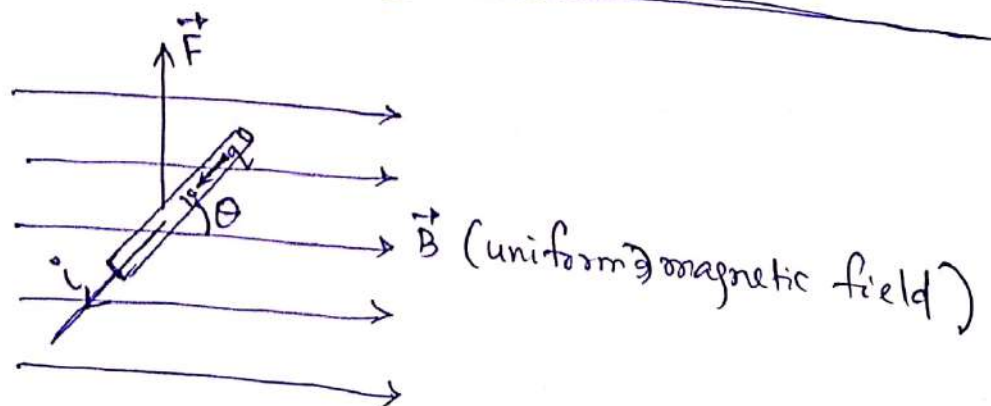 F⃗
θ
i
B⃗ (uniform magnetic field)